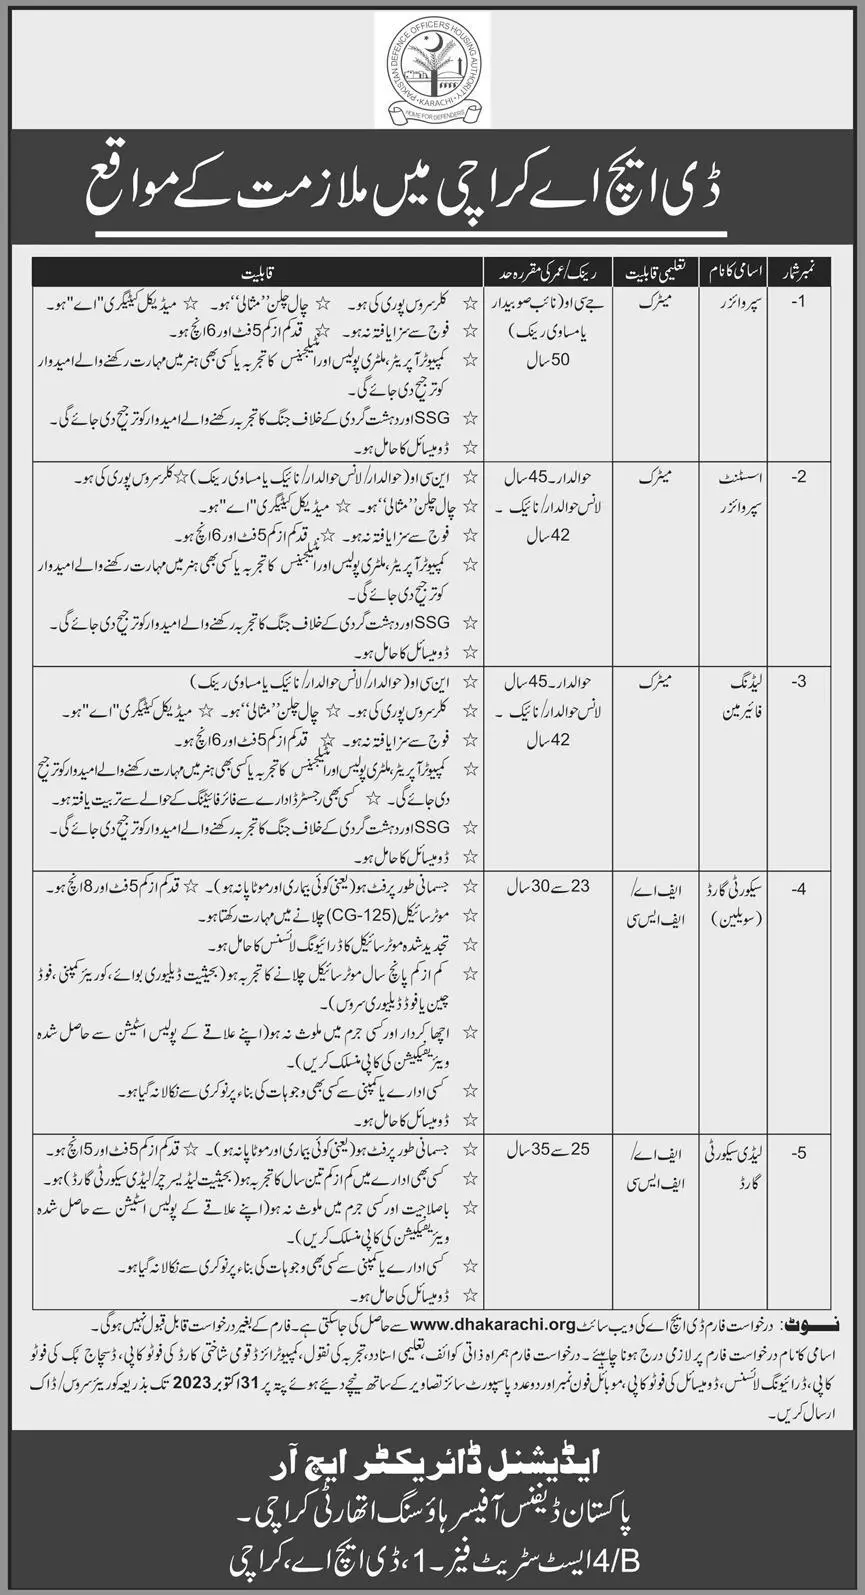 PAKISTAN DEFENCE OFFICERS HOUSING AUTHORITY
KARACHI
HOME FOR DEFENDERS
ڈی ایچ اے کراچی میں ملازمت کے مواقع
نمبر شمار اسامی کا نام تعلیمی قابلیت رینک/عمر کی مقررہ حد قابلیت
1- سپروائزر میٹرک جے سی او (نائب صوبیدار ☆ کلر سروس پوری کی ہو۔ ☆ چال چلن ”مثالی“ ہو۔ ☆ میڈیکل کیٹیگری "اے" ہو۔
یا مساوی رینک) ☆ فوج سے سزا یافتہ نہ ہو۔ ☆ قد کم از کم 5 فٹ اور 6 انچ ہو۔
50 سال ☆ کمپیوٹر آپریٹر، ملٹری پولیس اور انٹیلیجنس کا تجربہ یا کسی بھی ہنر میں مہارت رکھنے والے امیدوار
کو ترجیح دی جائے گی۔
☆ SSG اور دہشت گردی کے خلاف جنگ کا تجربہ رکھنے والے امیدوار کو ترجیح دی جائے گی۔
☆ ڈومیسائل کا حامل ہو۔
2- اسسٹنٹ میٹرک حوالدار۔ 45 سال ☆ این سی او (حوالدار/ لانس حوالدار/ نائیک یا مساوی رینک) ☆ کلر سروس پوری کی ہو۔
سپروائزر لانس حوالدار/ نائیک ۔ ☆ چال چلن ”مثالی“ ہو۔ ☆ میڈیکل کیٹیگری "اے" ہو۔
42 سال ☆ فوج سے سزا یافتہ نہ ہو۔ ☆ قد کم از کم 5 فٹ اور 6 انچ ہو۔
☆ کمپیوٹر آپریٹر، ملٹری پولیس اور انٹیلیجنس کا تجربہ یا کسی بھی ہنر میں مہارت رکھنے والے امیدوار
کو ترجیح دی جائے گی۔
☆ SSG اور دہشت گردی کے خلاف جنگ کا تجربہ رکھنے والے امیدوار کو ترجیح دی جائے گی۔
☆ ڈومیسائل کا حامل ہو۔
3- لیڈنگ میٹرک حوالدار۔ 45 سال ☆ این سی او (حوالدار/ لانس حوالدار/ نائیک یا مساوی رینک)
فائیرمین لانس حوالدار/ نائیک ۔ ☆ کلر سروس پوری کی ہو۔ ☆ چال چلن ”مثالی“ ہو۔ ☆ میڈیکل کیٹیگری "اے" ہو۔
42 سال ☆ فوج سے سزا یافتہ نہ ہو۔ ☆ قد کم از کم 5 فٹ اور 6 انچ ہو۔
☆ کمپیوٹر آپریٹر، ملٹری پولیس اور انٹیلیجنس کا تجربہ یا کسی بھی ہنر میں مہارت رکھنے والے امیدوار کو ترجیح
دی جائے گی۔ ☆ کسی بھی رجسٹرڈ ادارے سے فائر فائیٹنگ کے حوالے سے تربیت یافتہ ہو۔
☆ SSG اور دہشت گردی کے خلاف جنگ کا تجربہ رکھنے والے امیدوار کو ترجیح دی جائے گی۔
☆ ڈومیسائل کا حامل ہو۔
4- سیکورٹی گارڈ ایف اے/ 23 سے 30 سال ☆ جسمانی طور پر فٹ ہو (یعنی کوئی بیماری اور موٹاپا نہ ہو)۔ ☆ قد کم از کم 5 فٹ اور 8 انچ ہو۔
(سویلین) ایف ایس سی ☆ موٹر سائیکل (CG-125) چلانے میں مہارت رکھتا ہو۔
☆ تجدید شدہ موٹر سائیکل کا ڈرائیونگ لائسنس کا حامل ہو۔
☆ کم از کم پانچ سال موٹر سائیکل چلانے کا تجربہ ہو (بحیثیت ڈیلیوری بوائے، کوریئر کمپنی، فوڈ
چین یا فوڈ ڈیلیوری سروس)۔
☆ اچھا کردار اور کسی جرم میں ملوث نہ ہو (اپنے علاقے کے پولیس اسٹیشن سے حاصل شدہ
ویریفیکیشن کی کاپی منسلک کریں)۔
☆ کسی ادارے یا کمپنی سے کسی بھی وجوہات کی بناء پر نوکری سے نکالا نہ گیا ہو۔
☆ ڈومیسائل کا حامل ہو۔
5- لیڈی سیکورٹی ایف اے/ 25 سے 35 سال ☆ جسمانی طور پر فٹ ہو (یعنی کوئی بیماری اور موٹاپا نہ ہو)۔ ☆ قد کم از کم 5 فٹ اور 5 انچ ہو۔
گارڈ ایف ایس سی ☆ کسی بھی ادارے میں کم از کم تین سال کا تجربہ ہو (بحیثیت لیڈی سرچر/ لیڈی سیکورٹی گارڈ) ہو۔
☆ باصلاحیت اور کسی جرم میں ملوث نہ ہو (اپنے علاقے کے پولیس اسٹیشن سے حاصل شدہ
ویریفیکیشن کی کاپی منسلک کریں)۔
☆ کسی ادارے یا کمپنی سے کسی بھی وجوہات کی بناء پر نوکری سے نکالا نہ گیا ہو۔
☆ ڈومیسائل کی حامل ہو۔
نوٹ: درخواست فارم ڈی ایچ اے کی ویب سائٹ www.dhakarachi.org سے حاصل کی جاسکتی ہے۔ فارم کے بغیر درخواست قابل قبول نہیں ہوگی۔
اسامی کا نام درخواست فارم پر لازمی درج ہونا چاہیئے۔ درخواست فارم ہمراہ ذاتی کوائف، تعلیمی اسناد، تجربہ کی نقول، کمپیوٹرائزڈ قومی شناختی کارڈ کی فوٹو کاپی، ڈسچارج بک کی فوٹو
کاپی، ڈرائیونگ لائسنس، ڈومیسائل کی فوٹو کاپی، موبائل فون نمبر اور دو عدد پاسپورٹ سائز تصاویر کے ساتھ نیچے دیئے ہوئے پتہ پر 31 اکتوبر 2023 تک بذریعہ کوریئر سروس/ ڈاک
ارسال کریں۔
ایڈیشنل ڈائریکٹر ایچ آر
پاکستان ڈیفنس آفیسرز ہاؤسنگ اتھارٹی کراچی۔
4/B ایسٹ سٹریٹ فیز۔1، ڈی ایچ اے، کراچی